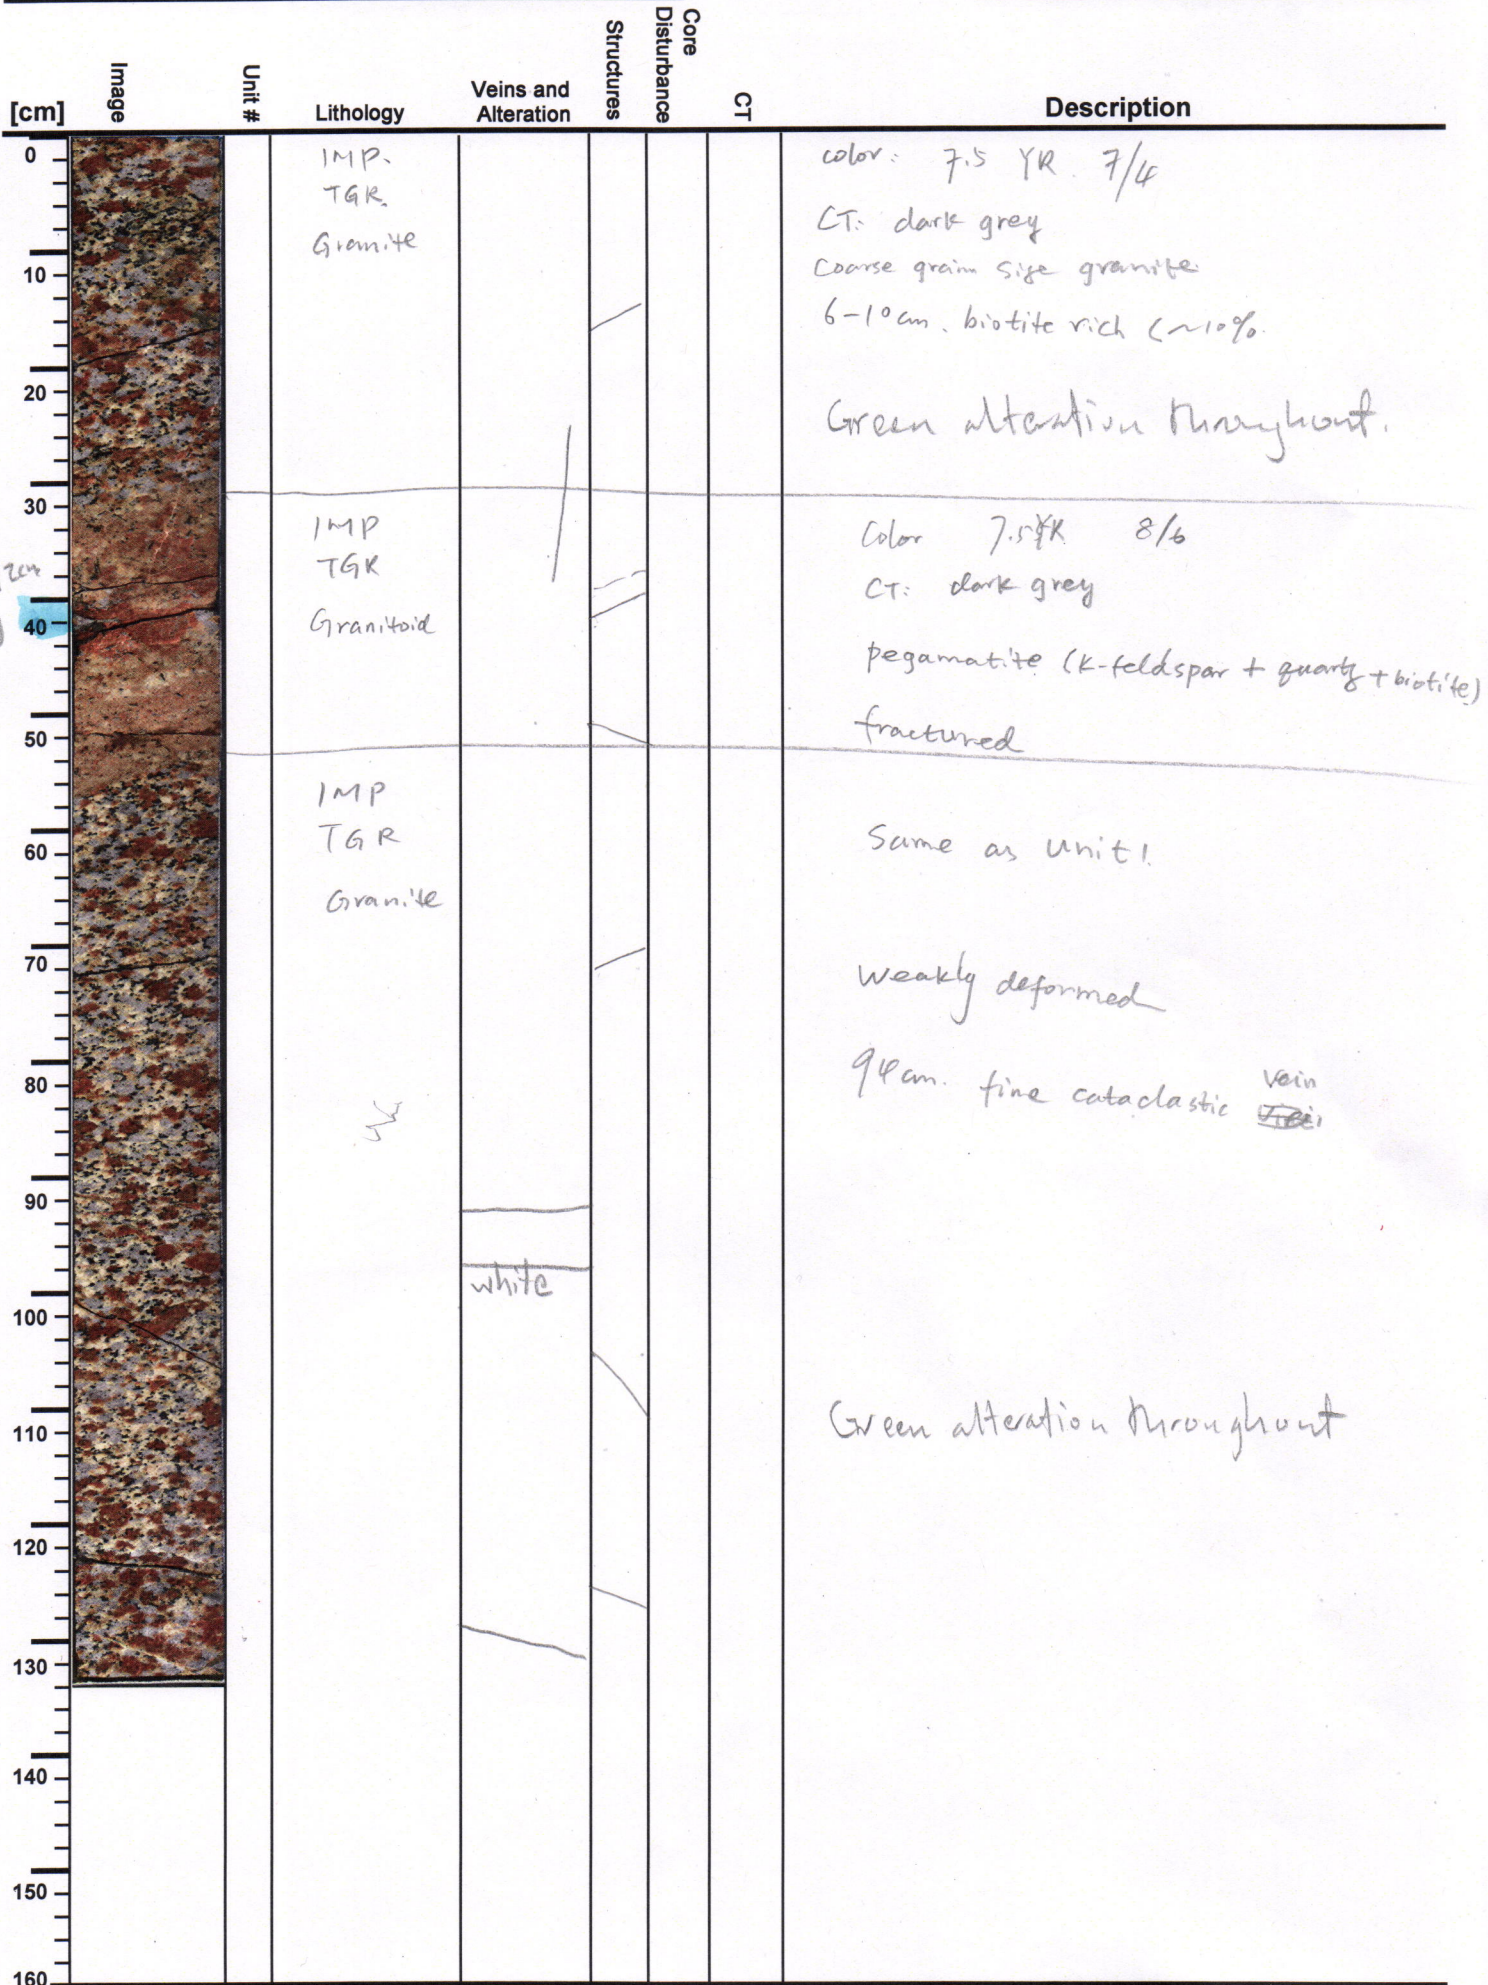 [cm]
Image
Unit #
Lithology
Veins and
Alteration
Structures
Core
Disturbance
CT
Description
0
10
20
30
40
50
60
70
80
90
100
110
120
130
140
150
160
IMP.
TGR.
Granite
color: 7.5 YR 7/4
CT: dark grey
Coarse grain size granite
6-10cm. biotite rich (~10%.
Green alteration throughout.
2cm
IMP
TGR
Granitoid
Color 7.5YR 8/6
CT: dark grey
pegamatite (K-feldspar + quartz + biotite)
fractured
IMP
TGR
Granite
Same as Unit 1.
Weakly deformed
94cm. fine cataclastic vein
white
Green alteration throughout